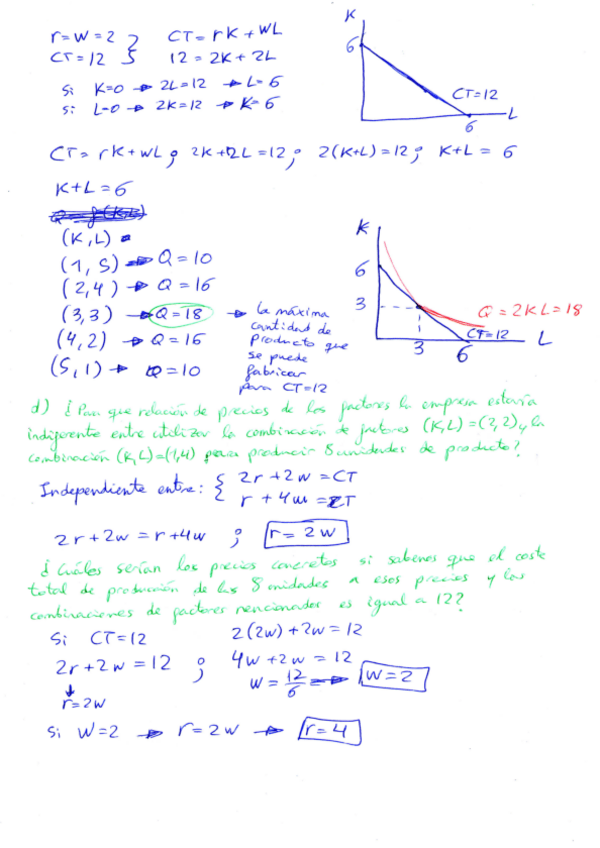 r=w=2 } CT=rK+wL
CT=12 } 12=2K+2L
Si K=0 → 2L=12 → L=6
si L=0 → 2K=12 → K=6
K
6
CT=12
L
6
CT=rK+wL; 2K+2L=12; 2(K+L)=12; K+L=6
K+L=6
(K,L)
(1,5) → Q=10
(2,4) → Q=16
(3,3) → Q=18 → la máxima cantidad de producto que se puede fabricar para CT=12
(4,2) → Q=16
(5,1) → Q=10
K
6
3
Q=2KL=18
CT=12
L
3
6
d) ¿Para que relación de precios de los factores la empresa estaría
indiferente entre utilizar la combinación de factores (K,L)=(2,2) y la
combinación (K,L)=(1,4) para producir 8 unidades de producto?
Independiente entre: { 2r+2w=CT
r+4w=CT
2r+2w=r+4w; r=2w
¿Cuáles serían los precios concretos si sabemos que el coste
total de producción de las 8 unidades a esos precios y las
combinaciones de factores mencionados es igual a 12?
Si CT=12 2(2w)+2w=12
2r+2w=12; 4w+2w=12
↓ w=12/6 → w=2
r=2w
si w=2 → r=2w → r=4